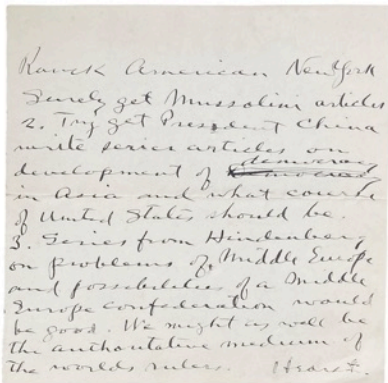 Ranck American New York
Surely get Mussolini articles
2. Try get President China
write series articles on
democracy
development of democracy
in Asia and what course
of United States should be.
3. Series from Hindenberg
on problems of Middle Europe
and possibilities of a Middle
Europe confederation would
be good. We might as well be
the authoritative medium of
the worlds rulers. Hearst.